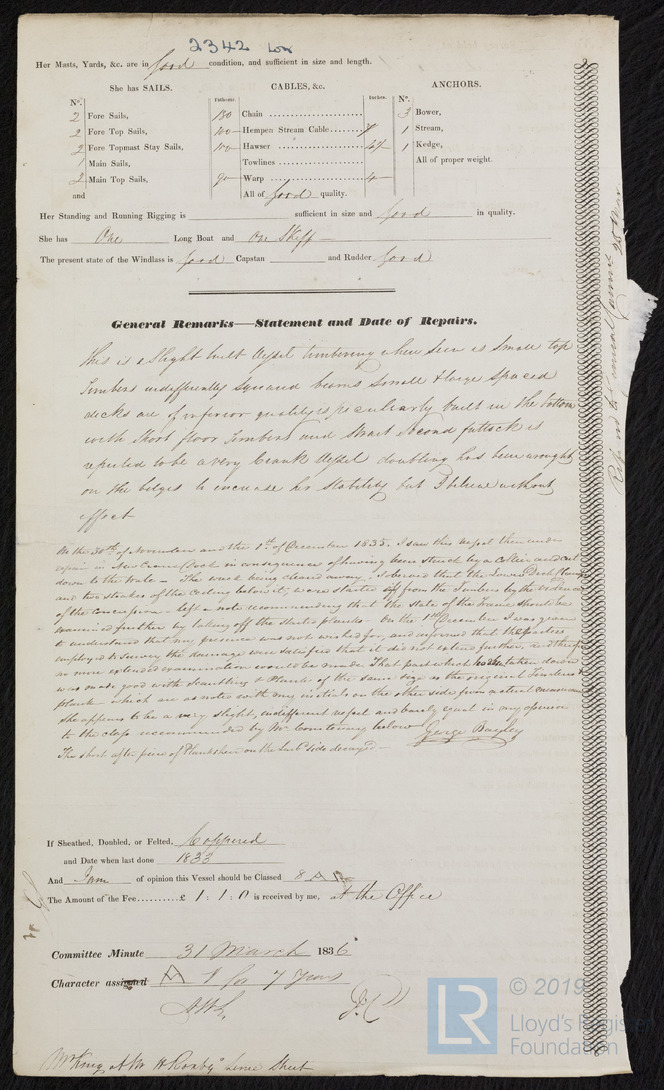 2342 Lon
Her Masts, Yards, &c. are in good condition, and sufficient in size and length.
She has SAILS.
CABLES, &c.
ANCHORS.
Nº.
Fathoms.
Inches.
Nº.
2 Fore Sails,
2 Fore Top Sails,
2 Fore Topmast Stay Sails,
1 Main Sails,
2 Main Top Sails,
and
180 Chain
100 Hempen Stream Cable 7
100 Hawser
Towlines
90 Warp 4
All of good quality.
3 Bower,
1 Stream,
1 Kedge,
All of proper weight.
Her Standing and Running Rigging is sufficient in size and good in quality.
She has One Long Boat and One Skiff
The present state of the Windlass is good Capstan and Rudder good
General Remarks—Statement and Date of Repairs.
This is a Slight built Vessel timbering when seen is Small top
Timbers indifferently Squared beams Small & large Spaced
decks are of inferior quality is peculiarly built in the bottom
with Short floor Timbers and Strait Second futtock is
reputed to be a very Crank Vessel doubling has been wrought
on the bilges to increase her Stability but I believe without
effect
On the 30th of November and the 1st of December 1835. I saw this vessel then under
repair in New Crane Dock in consequence of having been struck by a Collier and cut
down to the Wale - The wreck being cleared away, I observed that the Lower Deck Clamps
and two strakes of the Ceiling below it, were started off from the Timbers by the violence
of the Concussion - left a note recommending that the state of the Frame should be
examined further by taking off the started planks - On the 1st December I was given
to understand that my presence was not wished for, and informed that the parties
employed to Survey the damage were satisfied that it did not extend further, and therefore
no more extended examination would be made That part which had been taken down
was made good with Scantling & Plank of the same size as the original Timbers &
plank - which are as noted with my initials on the other side from actual measurement
She appears to be a very slight, indifferent vessel and barely equal in my opinion
to the class recommended by Mr Courtenay below George Bayley
The short after piece of Plank sheer on the Larbd side decayed -
If Sheathed, Doubled, or Felted, Coppered
and Date when last done 1833
And I am of opinion this Vessel should be Classed 8 A
The Amount of the Fee £ 1 : 1 : 0 is received by me, at the Office
Committee Minute 31 March 1836
Character assigned A 1 for 7 Years
© 2019
LR
Lloyd's Register
Foundation
Mr King at Mr H Rowby's Lime Street